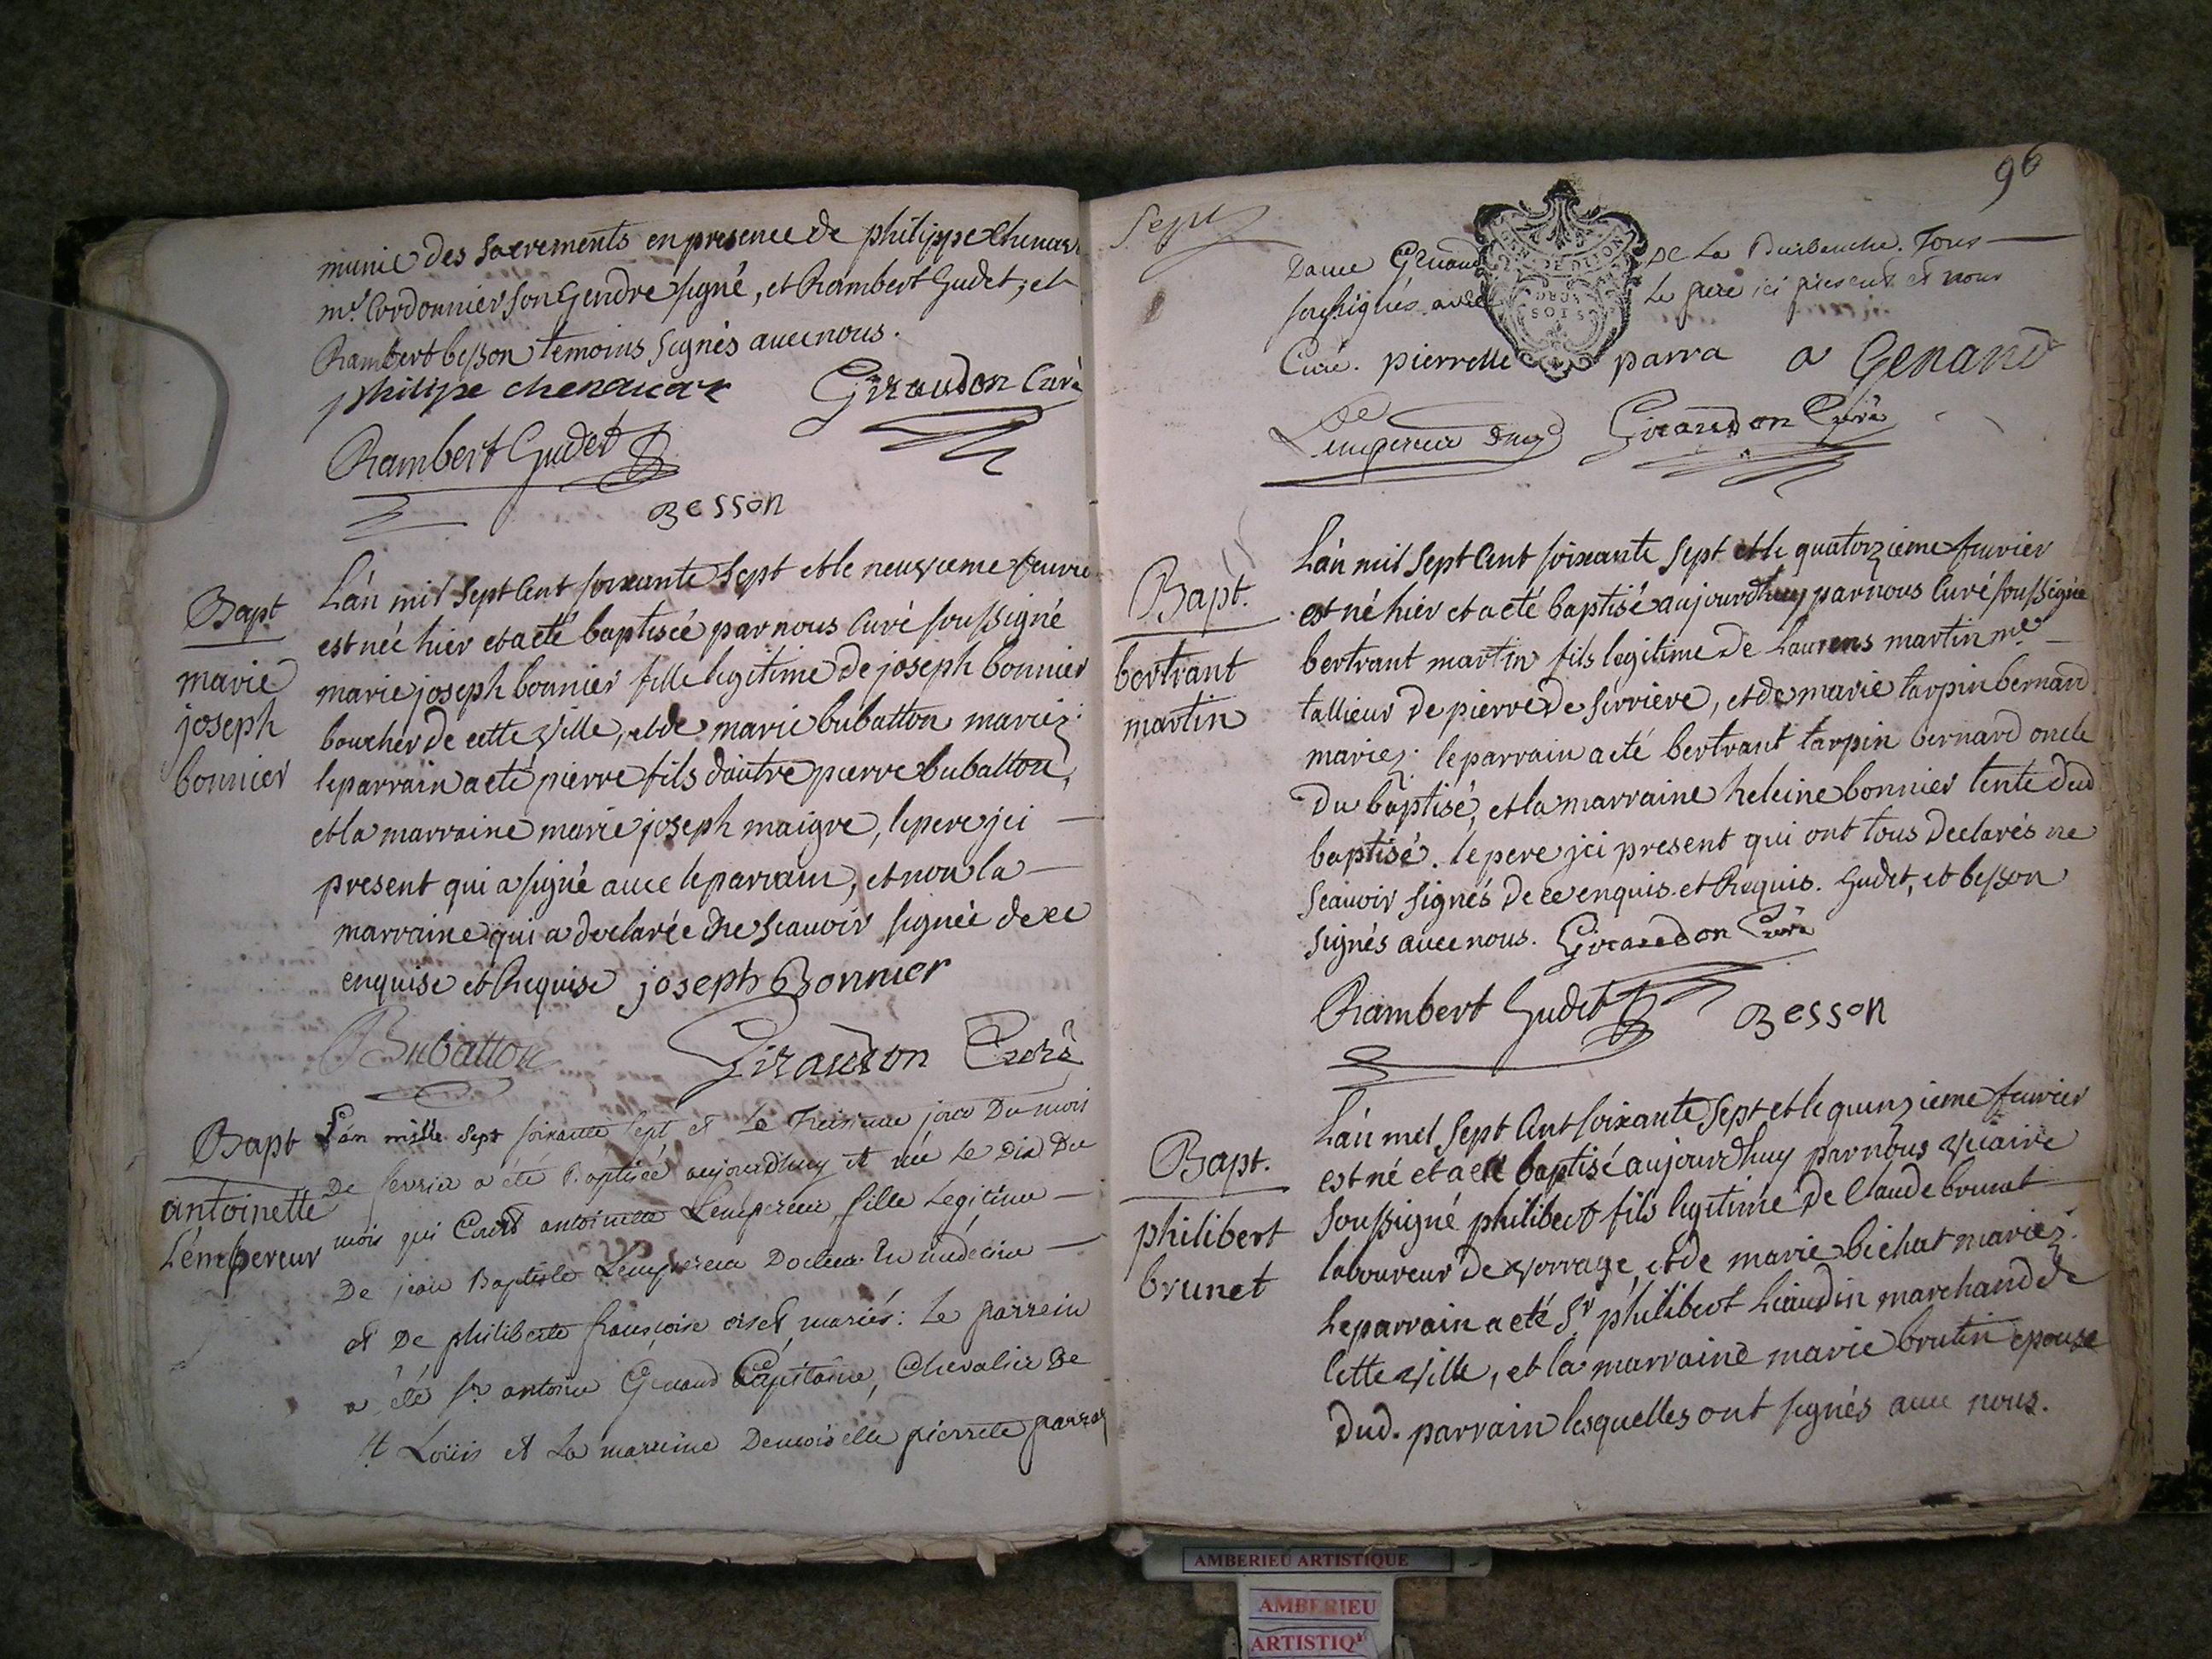 munie des sacrements en presence de philippe Chenava
mre Cordonnier son Gendre signé, et Rambert Gudet, et
Rambert besson temoins signés avec nous.
philipe chenavar Giraudon Curé
Rambert Gudet
Besson
Bapt
marie
joseph
bonnier
L'an mil sept Cent soixante sept et le neuvieme fevrier
est née hier et a eté baptisée par nous Curé soussigné
marie joseph bonnier fille legitime de joseph bonnier
boucher de cette ville, et de marie bubatton mariez:
le parrain a eté pierre fils d'autre pierre bubatton,
et la marraine marie joseph maigre, le pere ici
present qui a signé avec le parrain, et non la
marraine qui a declarée ne scavoir signée de ce
enquise et Requise joseph Bonnier
Bubatton Giraudon Curé
Bapt
antoinette
L'empereur
L'an mille sept soixante sept et le Treisieme jour Du mois
De fevrier a été Baptisée aujourd'huy et née le dix Du
mois qui Court antoinette L'empereur fille Legitime
De jean Baptiste L'empereur Docteur En medecine
et De philiberte françoise orset mariés: Le parrein
a été Sr. antoine Genaud Capitaine, Chevalier De
St Loüis et La marreine Demoiselle pierrete parra
96
Sept
GEN. DE DIJON
DEUX
SOLS
Dame Genaud De La Burbanche. Tous
soussignés avec Le pere ici present et nous
Curé. pierrette parra a Genand
L'empereur Giraudon Curé
Bapt.
bertrant
martin
L'an mil sept Cent soixante sept et le quatorzieme fevrier
est né hier et a eté baptisé aujourdhuy par nous Curé soussigné
bertrant martin fils legitime de Laurens martin me
tallieur de pierre de serriere, et de marie tarpin bernard
mariez: le parrain a eté bertrant tarpin bernard oncle
du baptisé, et la marraine heleine bonnier tente dud
baptisé. le pere ici present qui ont tous declarés ne
scavoir signés de ce enquis et Requis. Gudet, et besson
signés avec nous. Giraudon Curé
Rambert Gudet Besson
Bapt.
philibert
brunet
L'an mil sept Cent soixante sept et le quinzieme fevrier
est né et a eté baptisé aujourdhuy par nous vicaire
soussigné philibert fils legitime de Claude brunet
laboureur de vorrage, et de marie bichat mariez.
le parrain a eté Sr philibert Liaudin marchand de
Cette ville, et la marraine marie brutin epouse
dud. parrain lesquelles ont signés avec nous.
AMBERIEU ARTISTIQUE
AMBERIEU
ARTISTIQUE